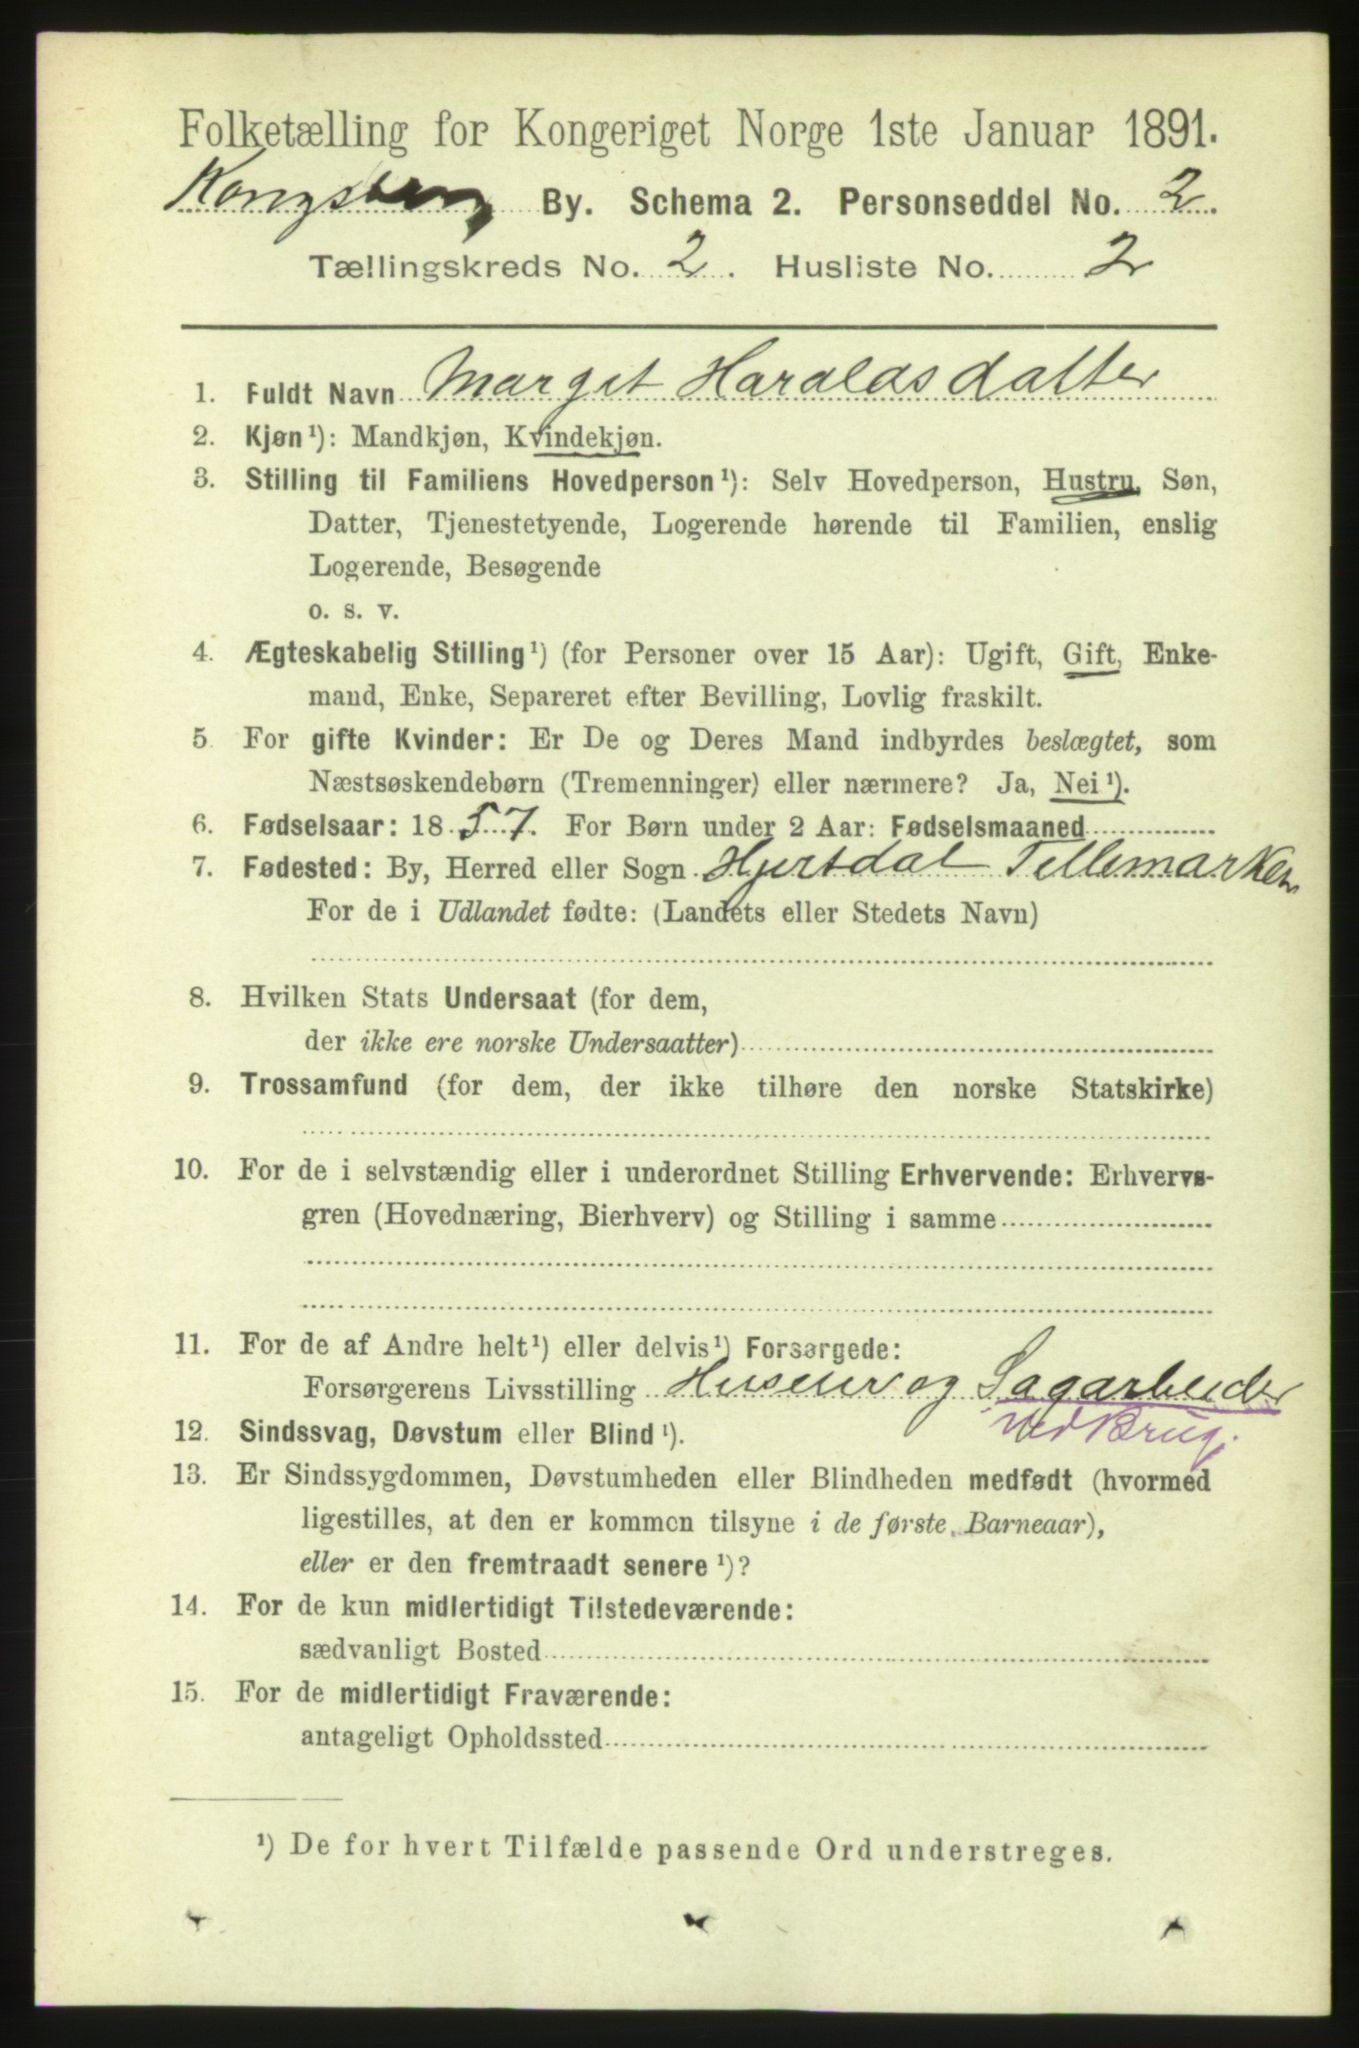 Folketælling for Kongeriget Norge 1ste Januar 1891.
Kongsberg By. Schema 2. Personseddel No. 2.
Tællingskreds No. 2. Husliste No. 2
1. Fuldt Navn Margit Haraldsdatter
2. Kjøn¹): Mandkjøn, Kvindekjøn.
3. Stilling til Familiens Hovedperson¹): Selv Hovedperson, Hustru, Søn,
Datter, Tjenestetyende, Logerende hørende til Familien, enslig
Logerende, Besøgende
o. s. v.
4. Ægteskabelig Stilling¹) (for Personer over 15 Aar): Ugift, Gift, Enke-
mand, Enke, Separeret efter Bevilling, Lovlig fraskilt.
5. For gifte Kvinder: Er De og Deres Mand indbyrdes beslægtet, som
Næstsøskendebørn (Tremenninger) eller nærmere? Ja, Nei¹).
6. Fødselsaar: 1857. For Børn under 2 Aar: Fødselsmaaned
7. Fødested: By, Herred eller Sogn Hjertdal Tellemarken
For de i Udlandet fødte: (Landets eller Stedets Navn)
8. Hvilken Stats Undersaat (for dem,
der ikke ere norske Undersaatter)
9. Trossamfund (for dem, der ikke tilhøre den norske Statskirke)
10. For de i selvstændig eller i underordnet Stilling Erhvervende: Erhvervs-
gren (Hovednæring, Bierhverv) og Stilling i samme
11. For de af Andre helt¹) eller delvis¹) Forsørgede:
Forsørgerens Livsstilling Huseier og Sagarbeider
ved Brug.
12. Sindssvag, Døvstum eller Blind¹).
13. Er Sindssygdommen, Døvstumheden eller Blindheden medfødt (hvormed
ligestilles, at den er kommen tilsyne i de første Barneaar),
eller er den fremtraadt senere¹)?
14. For de kun midlertidigt Tilstedeværende:
sædvanligt Bosted
15. For de midlertidigt Fraværende:
antageligt Opholdssted
¹) De for hvert Tilfælde passende Ord understreges.